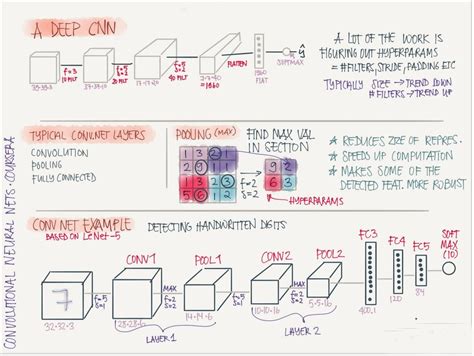 A DEEP CNN
39·39·3
f=3
10 FILT
37·37·10
f=5
S=2
20 FILT
17·17·20
f=5
S=2
40 FILT
7·7·40
=1960
FLATTEN
1960
FLAT
SOFTMAX
ŷ
A LOT OF THE WORK IS
FIGURING OUT HYPERPARAMS
= #FILTERS, STRIDE, PADDING ETC
TYPICALLY SIZE → TREND DOWN
# FILTERS → TREND UP
TYPICAL CONV.NET LAYERS
CONVOLUTION
POOLING
FULLY CONNECTED
POOLING (MAX)
FIND MAX VAL
IN SECTION
1 3 2 1
2 9 1 1
1 3 2 3
5 6 1 2
f=2
S=2
9 2
6 3
HYPERPARAMS
★ REDUCES SIZE OF REPRES.
★ SPEEDS UP COMPUTATION
★ MAKES SOME OF THE
DETECTED FEAT. MORE ROBUST
CONV NET EXAMPLE
BASED ON LeNet-5
DETECTING HANDWRITTEN DIGITS
7
32·32·3
f=5
S=1
CONV1
28·28·6
MAX
f=2
S=2
POOL1
14·14·6
LAYER 1
f=5
S=1
CONV2
10·10·16
MAX
f=2
S=2
POOL2
5·5·16
LAYER 2
FC3
400,1
FC4
120
FC5
84
SOFT
MAX
(10)
CONVOLUTIONAL NEURAL NETS · COURSERA